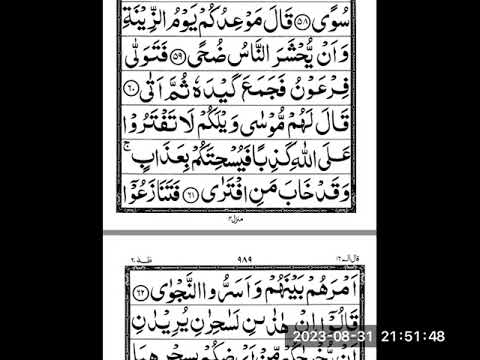 سُوًى ﴿۵۸﴾ قَالَ مَوْعِدُكُمْ يَوْمُ الزِّيْنَةِ
وَ اَنْ يُّحْشَرَ النَّاسُ ضُحًى ﴿۵۹﴾ فَتَوَلّٰى
فِرْعَوْنُ فَجَمَعَ كَيْدَهٗ ثُمَّ اَتٰى ﴿۶۰﴾
قَالَ لَهُمْ مُّوْسٰى وَيْلَكُمْ لَا تَفْتَرُوْا
عَلَى اللّٰهِ كَذِبًا فَيُسْحِتَكُمْ بِعَذَابٍ ۚ
وَ قَدْ خَابَ مَنِ افْتَرٰى ﴿۶۱﴾ فَتَنَازَعُوْۤا
منزل ۴
قال الم ۱۶ ۹۸۹ طٰهٰ ۲۰
اَمْرَهُمْ بَيْنَهُمْ وَ اَسَرُّوا النَّجْوٰى ﴿۶۲﴾
قَالُوْۤا اِنْ هٰذٰىنِ لَسٰحِرٰنِ يُرِيْدٰنِ
اَنْ يُّخْرِجٰكُمْ مِّنْ اَرْضِكُمْ بِسِحْرِهِمَا
2023-08-31 21:51:48